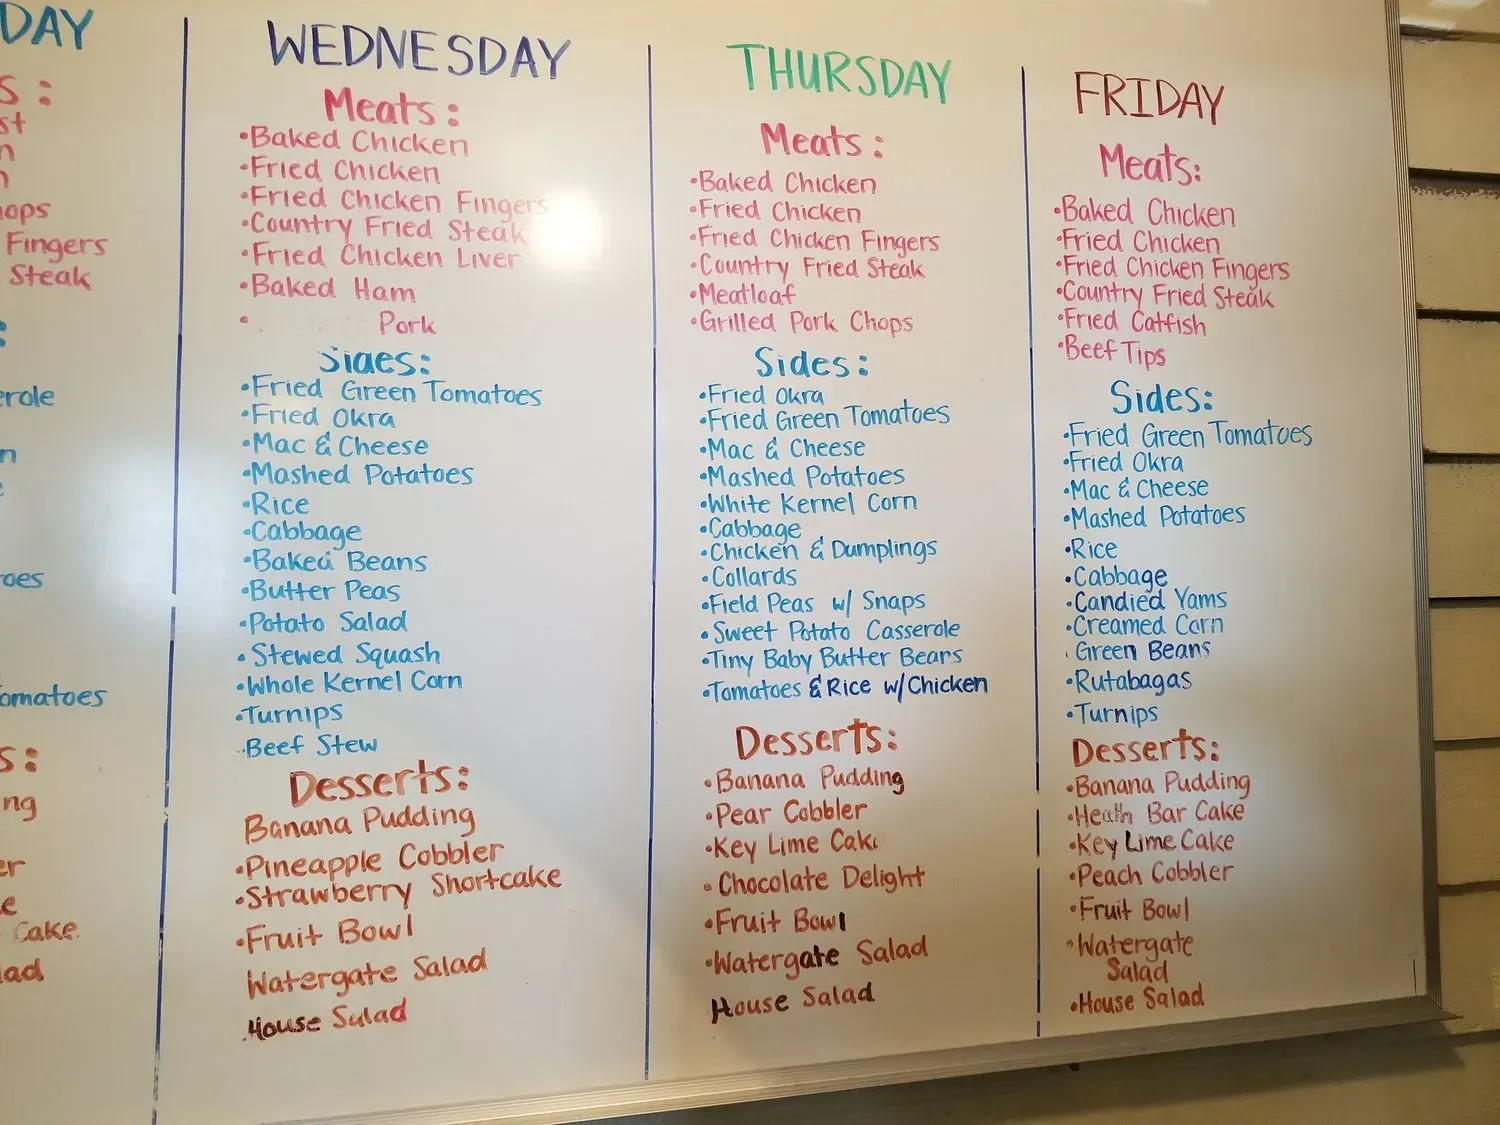 DAY
S:
st
n
n
hops
Fingers
Steak
:
erole
n
e
toes
omatoes
s:
ng
er
e
Cake
lad
WEDNESDAY
Meats:
•Baked Chicken
•Fried Chicken
•Fried Chicken Fingers
•Country Fried Steak
•Fried Chicken Liver
•Baked Ham
• Pork
Sides:
•Fried Green Tomatoes
•Fried Okra
•Mac & Cheese
•Mashed Potatoes
•Rice
•Cabbage
•Baked Beans
•Butter Peas
•Potato Salad
•Stewed Squash
•Whole Kernel Corn
•Turnips
•Beef Stew
Desserts:
Banana Pudding
•Pineapple Cobbler
•Strawberry Shortcake
•Fruit Bowl
Watergate Salad
•House Salad
THURSDAY
Meats:
•Baked Chicken
•Fried Chicken
•Fried Chicken Fingers
•Country Fried Steak
•Meatloaf
•Grilled Pork Chops
Sides:
•Fried Okra
•Fried Green Tomatoes
•Mac & Cheese
•Mashed Potatoes
•White Kernel Corn
•Cabbage
•Chicken & Dumplings
•Collards
•Field Peas w/ Snaps
•Sweet Potato Casserole
•Tiny Baby Butter Bears
•Tomatoes & Rice w/Chicken
Desserts:
•Banana Pudding
•Pear Cobbler
•Key Lime Cake
•Chocolate Delight
•Fruit Bowl
•Watergate Salad
House Salad
FRIDAY
Meats:
•Baked Chicken
•Fried Chicken
•Fried Chicken Fingers
•Country Fried Steak
•Fried Catfish
•Beef Tips
Sides:
•Fried Green Tomatoes
•Fried Okra
•Mac & Cheese
•Mashed Potatoes
•Rice
•Cabbage
•Candied Yams
•Creamed Corn
•Green Beans
•Rutabagas
•Turnips
Desserts:
•Banana Pudding
•Heath Bar Cake
•Key Lime Cake
•Peach Cobbler
•Fruit Bowl
•Watergate
Salad
•House Salad